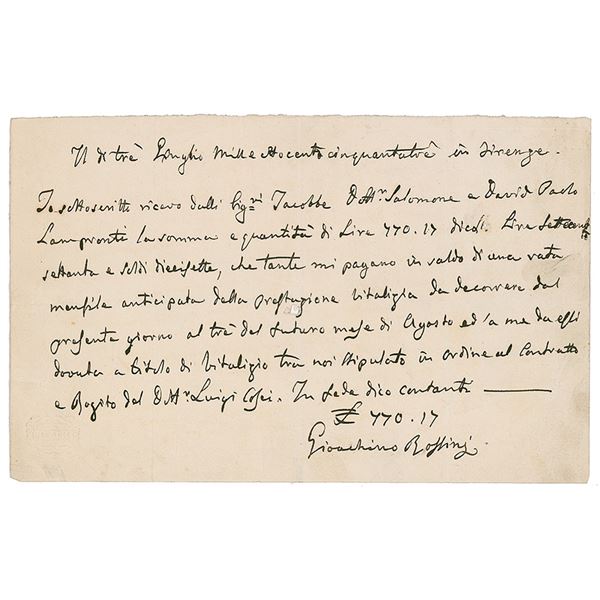 Il di trè Luglio Mille Ottocento cinquantatrè in Firenze.
Io sottoscritto ricevo dalli Sigri Jacobbe Dottr Salomone e David Paolo
Lampronti la somma e quantità di Lire 770.17 dico. Lire Settecento
settanta e soldi dieciſette, che tante mi pagano in saldo di una rata
mensile anticipata della preſtazione vitalizia da decorrere dal
preſente giorno al trè del futuro mese di Agosto ed a me da eſſi
dovuta a titolo di Vitalizio tra noi stipulato in ordine al Contratto
e Rogito del Dottr Luigi. In fede dico contanti
£ 770.17
Gioachino Roſsini